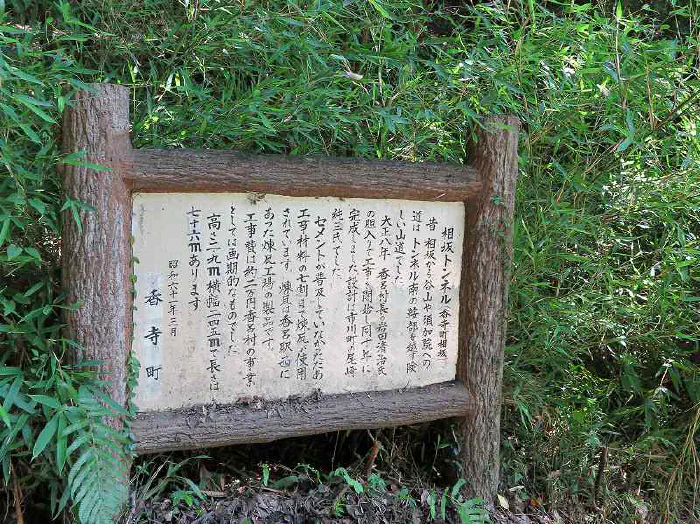 相坂トンネル 香寺町相坂
昔 相坂から谷山や須加院への
道は トンネル南の峠部を越す険
しい山道でした
大正八年 香呂村長の岩田清治氏
の肝入りで工事を開始し同十年に
完成しました設計は市川町の尾崎
純三氏でした
セメントが普及していなかったため
工事材料の七割まで煉瓦が使用
されています 煉瓦は香呂駅西に
あった煉瓦工場の製品です
工事費は約二万円香呂村の事業
としては画期的なものでした
高さ三、九m横幅二四五mで長さは
七十六mあります
昭和六十一年三月
香寺町